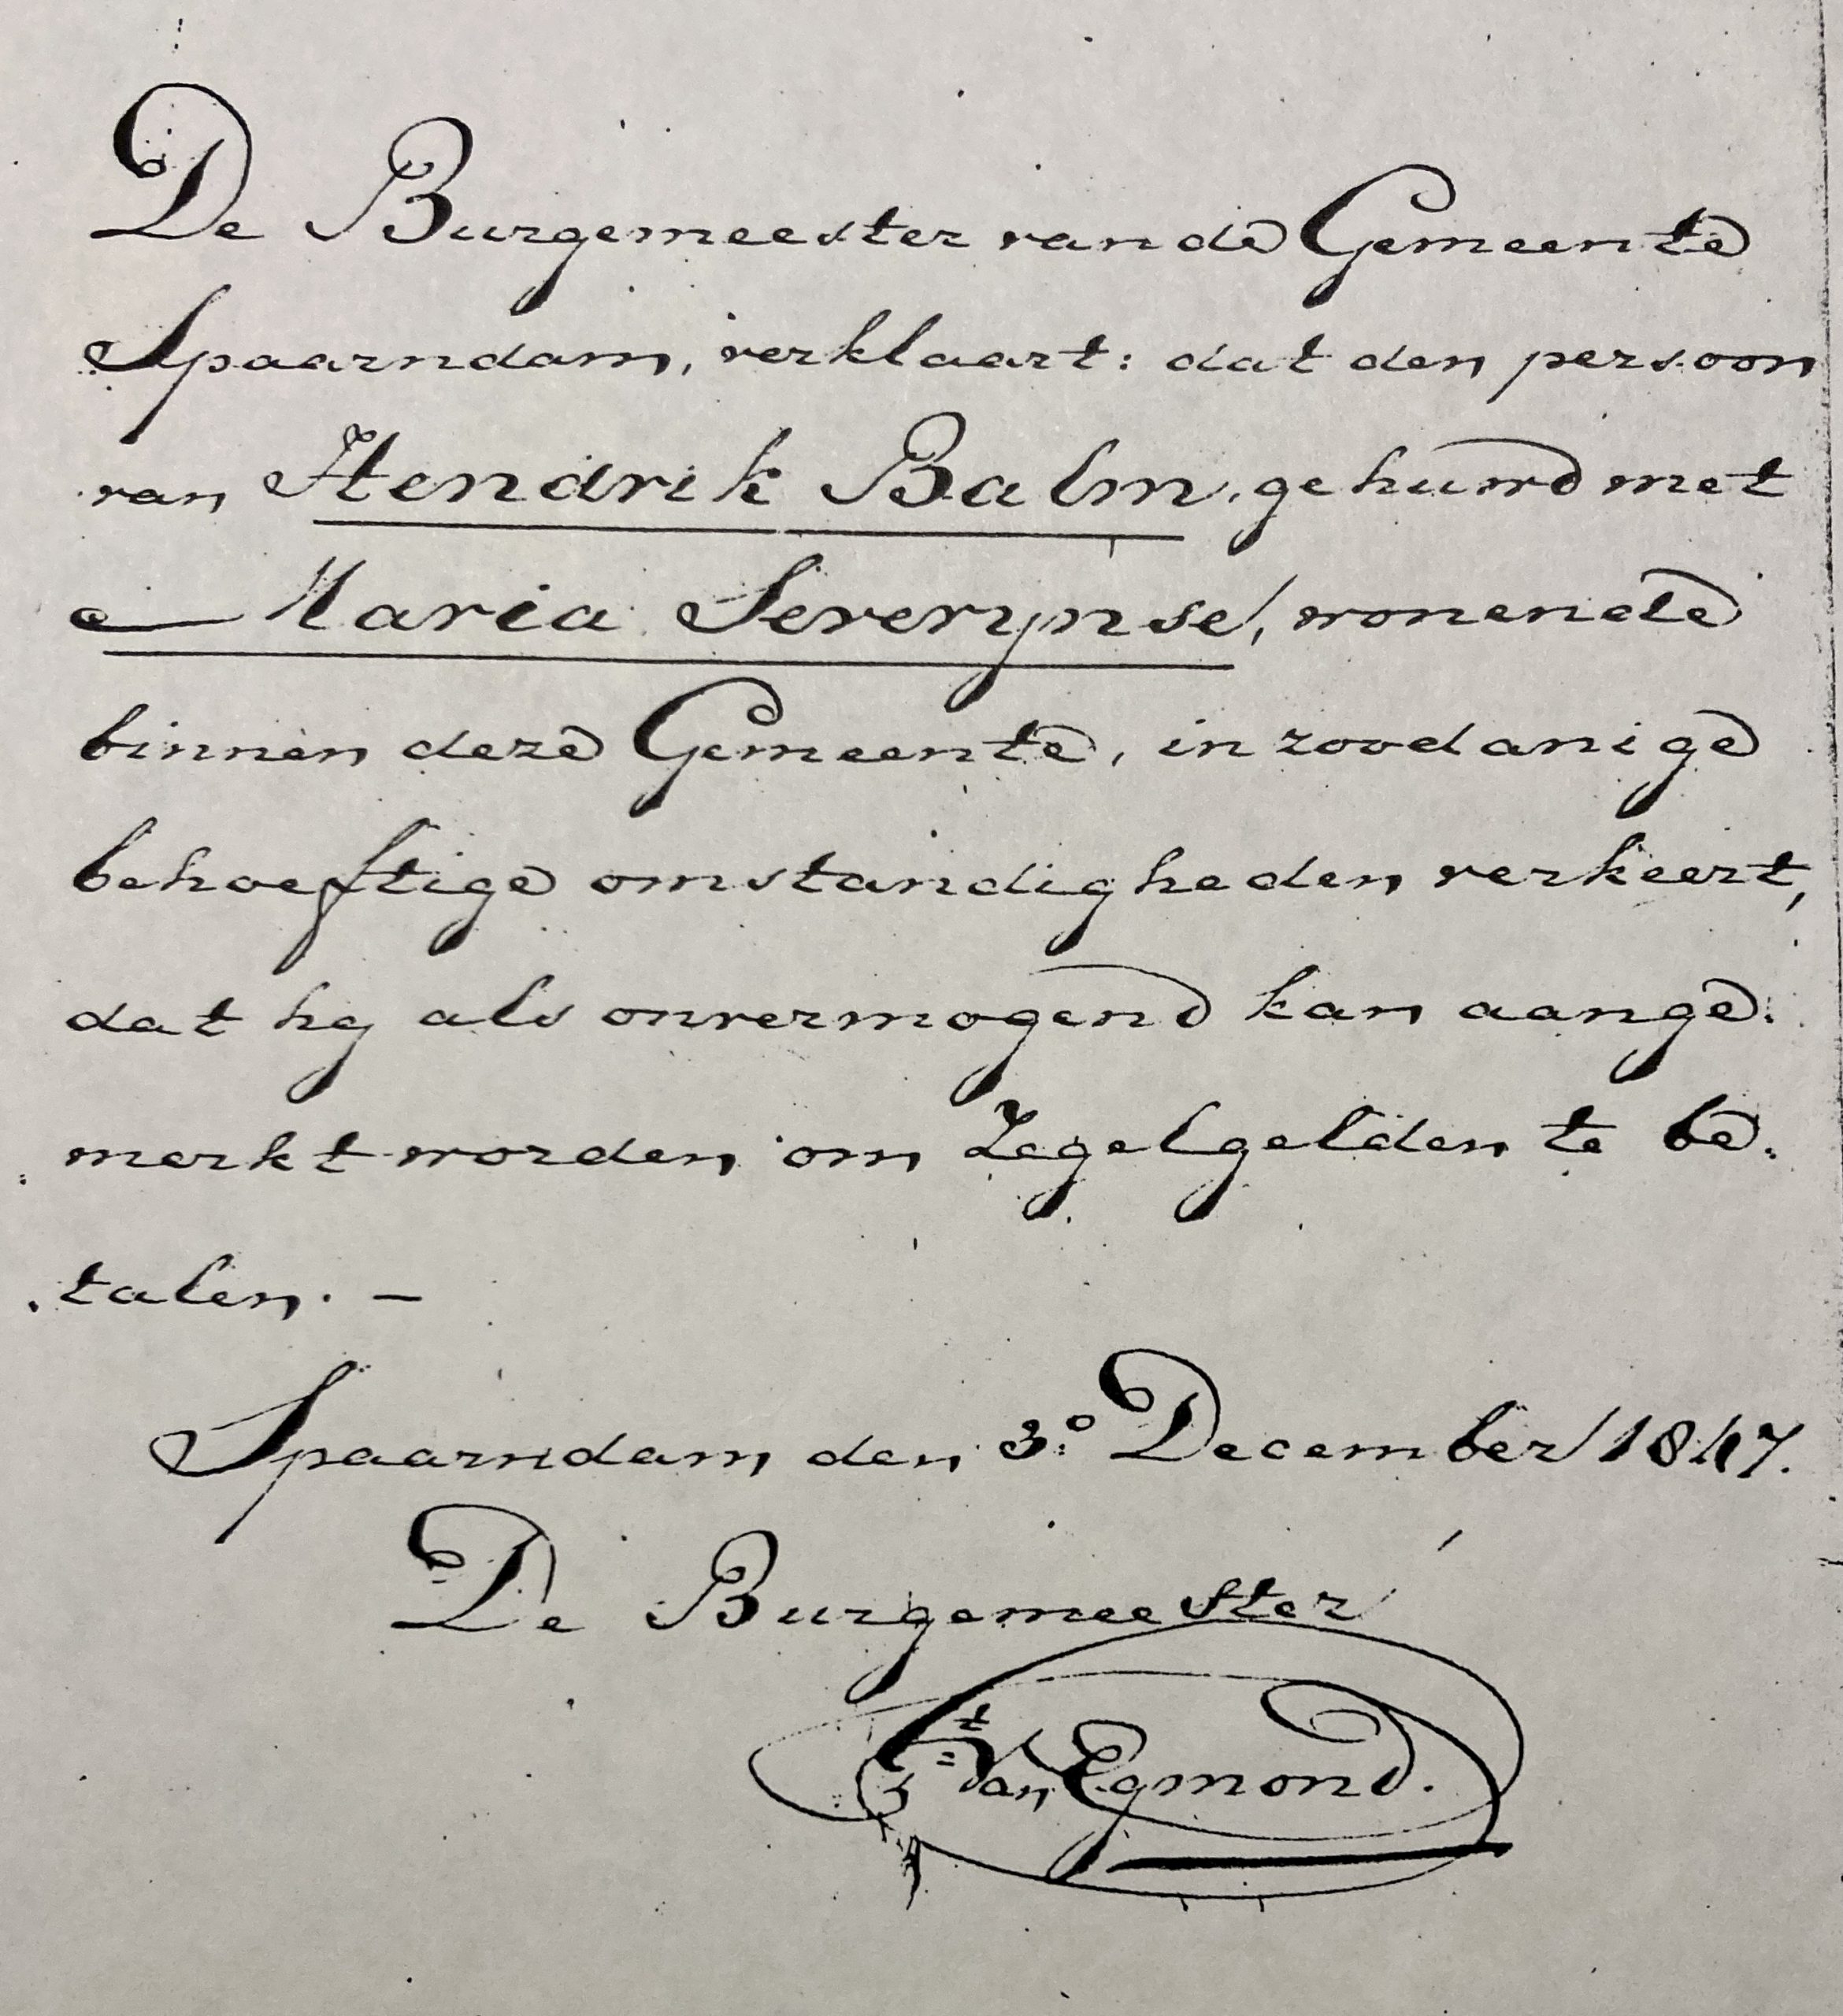 De Burgemeester van de Gemeente
Spaarndam, verklaart: dat den persoon
van Hendrik Balm, gehuwd met
Maria Severynse, wonende
binnen deze Gemeente, in zoodanige
behoeftige omstandigheden verkeert,
dat hy als onvermogend kan aange:
merkt worden om Zegelgelden te be:
talen. —
Spaarndam den 3.º December 1847.
De Burgemeester
van Egmond.